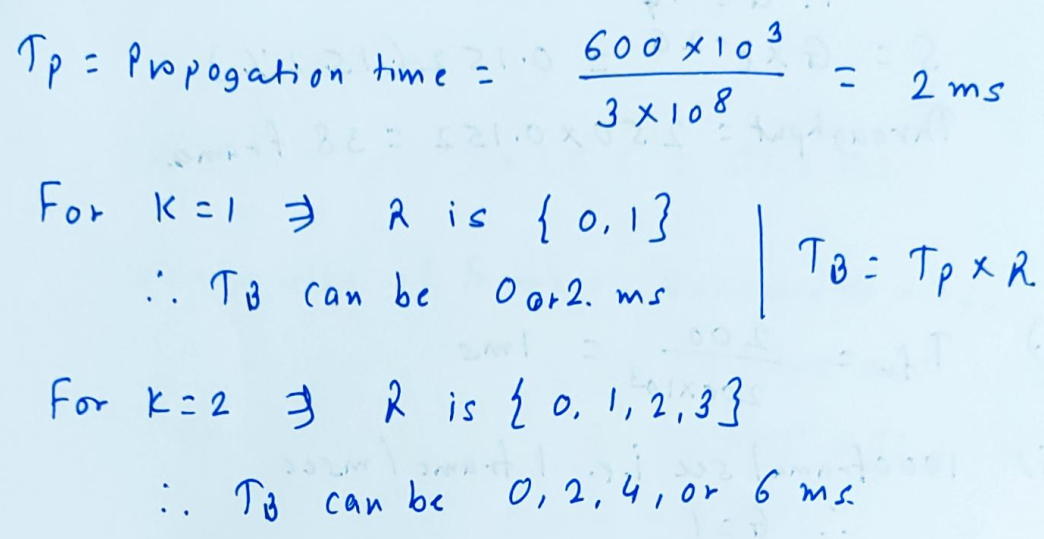 Tp = Propogation time = 600 × 10³ / 3 × 10⁸ = 2 ms
For K = 1 ∃ R is { 0, 1 }
∴ TB can be 0 or 2. ms
TB = Tp × R
For K = 2 ∃ R is { 0, 1, 2, 3 }
∴ TB can be 0, 2, 4, or 6 ms.